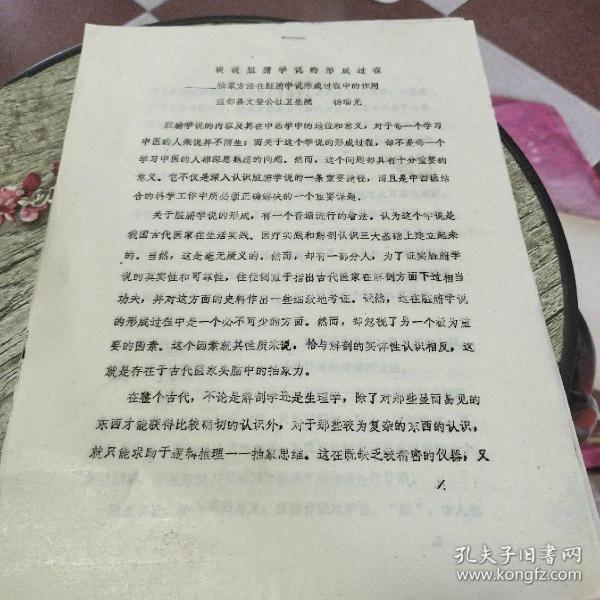 谈谈脏腑学说的形成过程
——抽象方法在脏腑学说形成过程中的作用
益都县文登公社卫生院 杨瑞尤
脏腑学说的内容及其在中医学中的地位和意义，对于每一个学习
中医的人来说并不陌生；而关于这个学说的形成过程，却不是每一个
学习中医的人都深思熟虑的问题。然而，这个问题却具有十分重要的
意义。它不仅是深入认识脏腑学说的一条重要途径，而且是中西医结
合的科学工作中所必须正确解决的一个重要课题。
关于脏腑学说的形成，有一个普遍流行的看法。认为这个学说是
我国古代医家在生活实践、医疗实践和解剖认识三大基础上建立起来
的。当然，这是毫无疑义的。然而，却有一部分人，为了证实脏腑学
说的真实性和可靠性，往往侧重于指出古代医家在解剖方面下过相当
功夫，并对这方面的史料作出一些细致地考证。诚然，这在脏腑学说
的形成过程中是一个必不可少的方面。然而，却忽视了另一个极为重
要的因素。这个因素就其性质来说，恰与解剖的实体性认识相反，这
就是存在于古代医家头脑中的抽象力。
在整个古代，不论是解剖学还是生理学，除了对那些显而易见的
东西才能获得比较确切的认识外，对于那些较为复杂的东西的认识，
就只能求助于逻辑推理——抽象思维。这在既缺乏较精密的仪器，又
孔夫子旧书网
www.kongfz.com